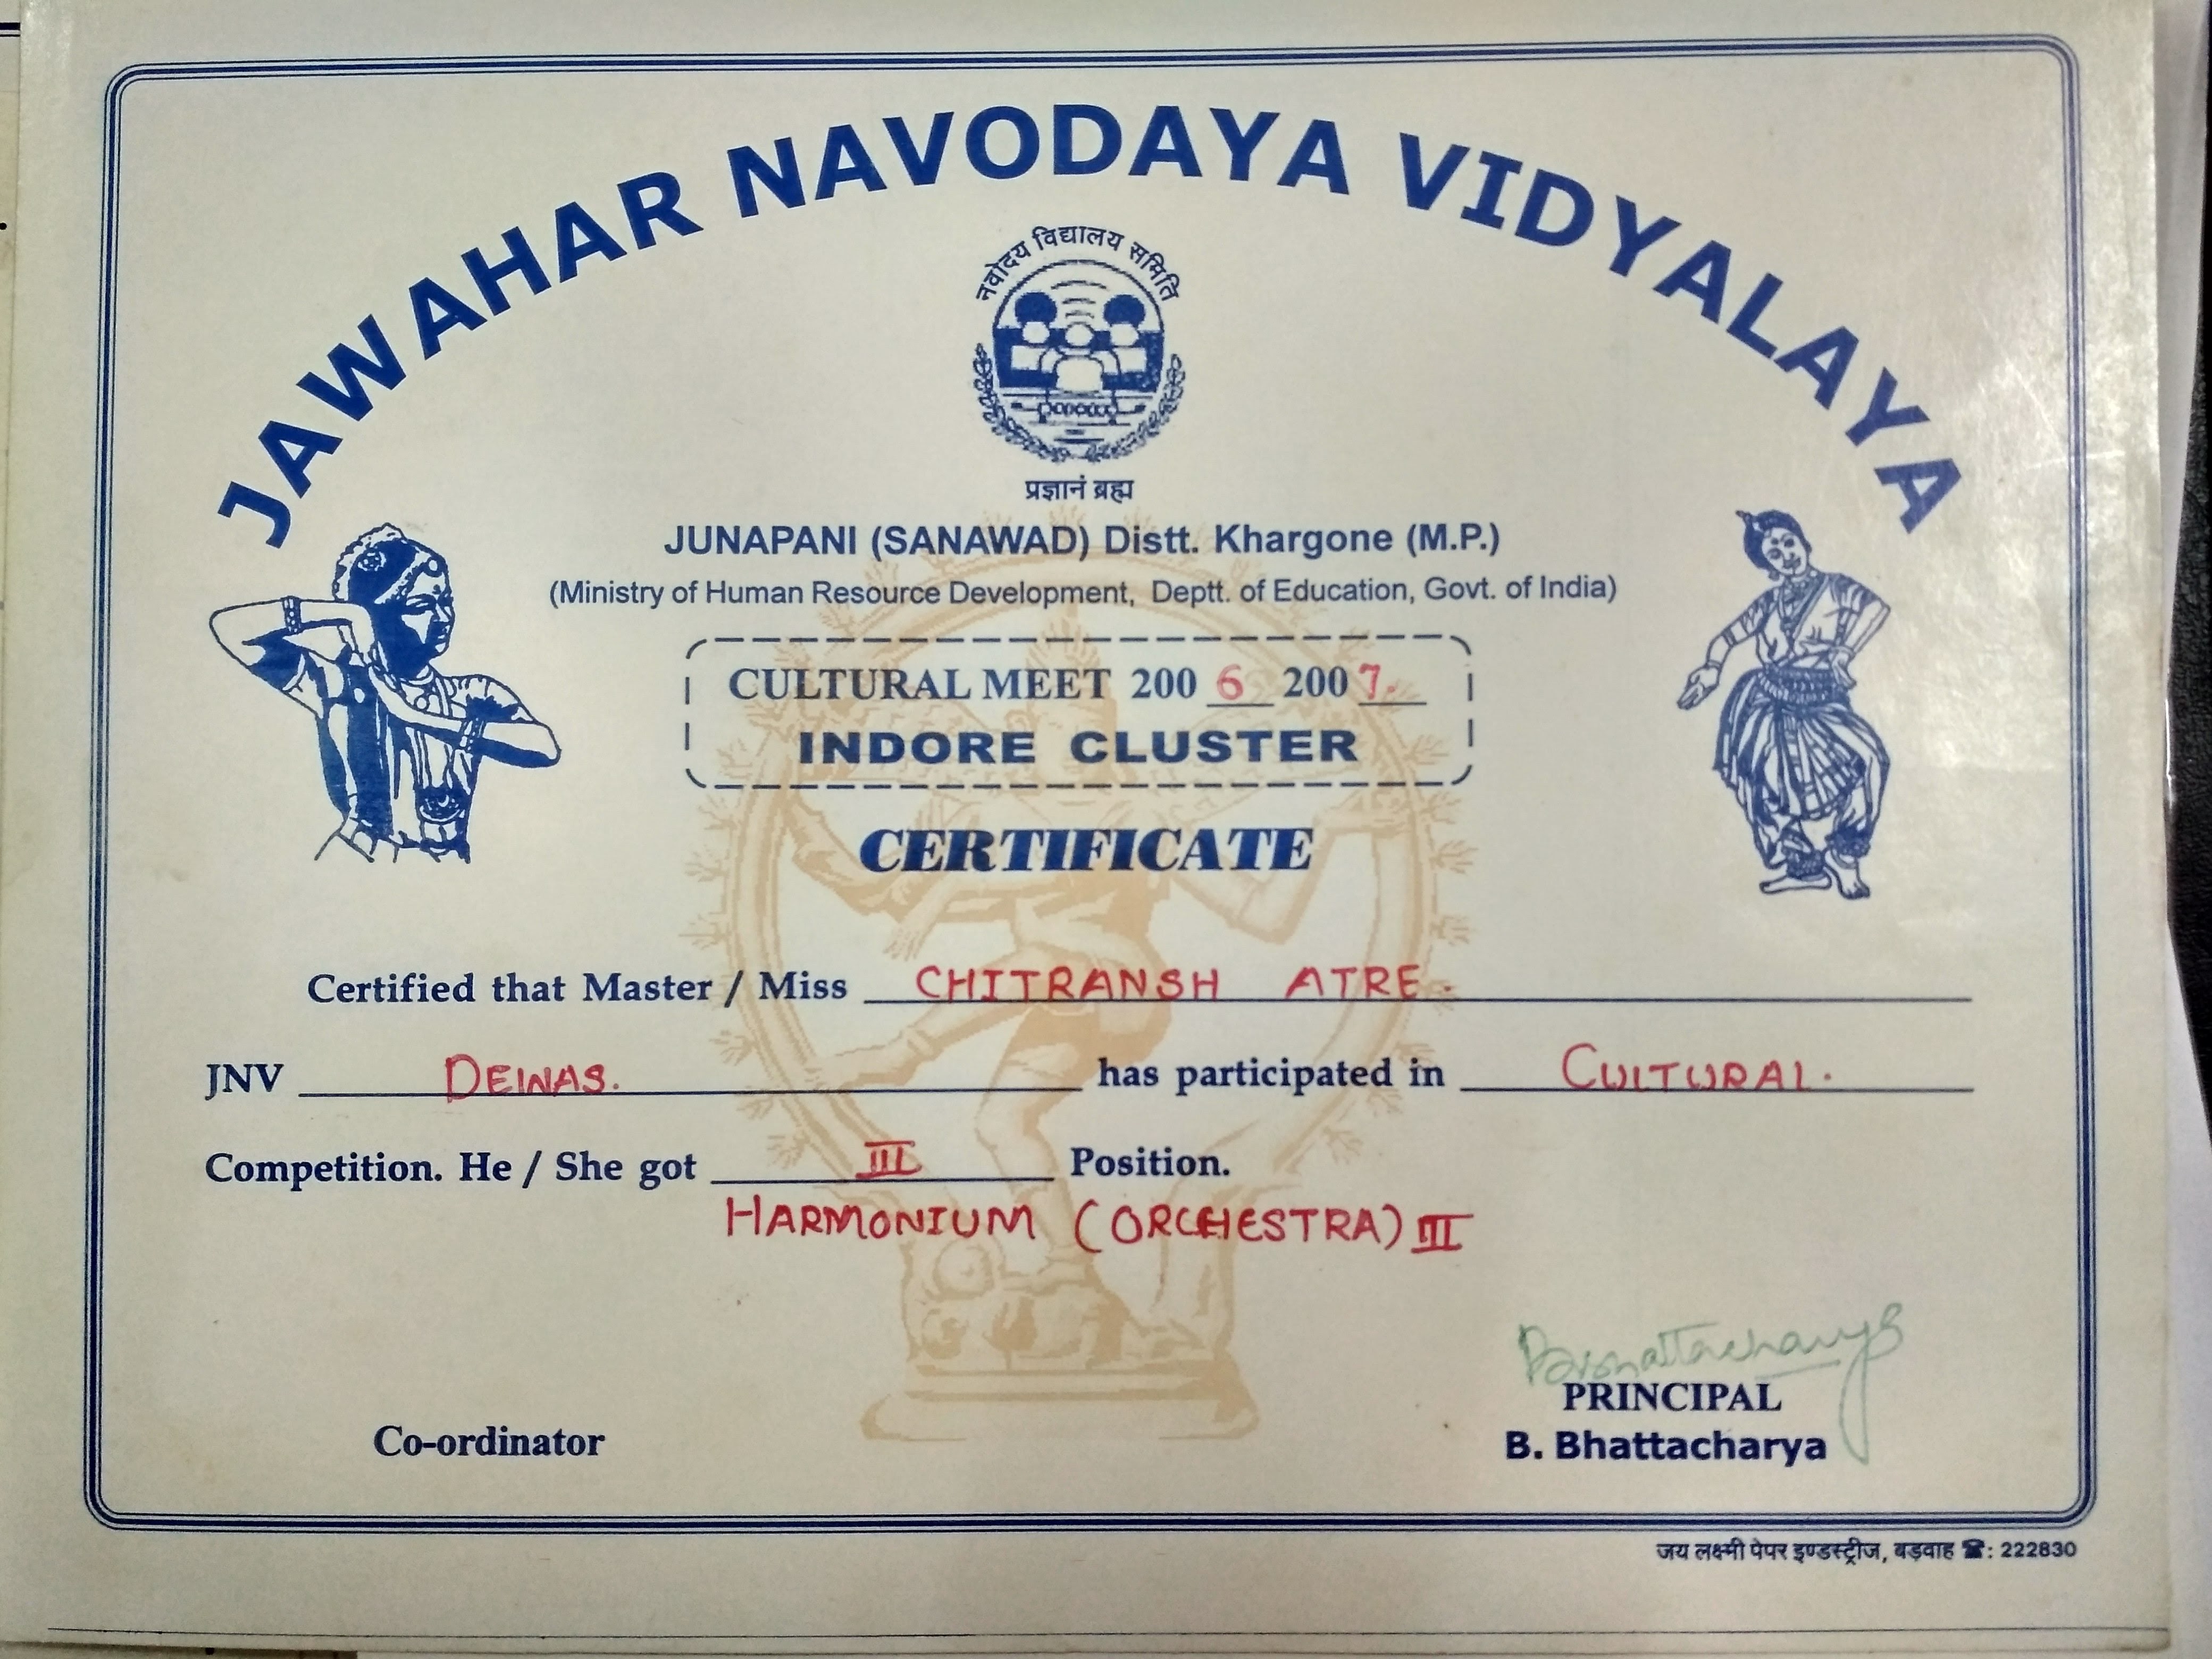 JAWAHAR NAVODAYA VIDYALAYA
नवोदय विद्यालय समिति
प्रज्ञानं ब्रह्म
JUNAPANI (SANAWAD) Distt. Khargone (M.P.)
(Ministry of Human Resource Development, Deptt. of Education, Govt. of India)
CULTURAL MEET 2006 2007.
INDORE CLUSTER
CERTIFICATE
Certified that Master / Miss CHITRANSH ATRE.
JNV DEWAS. has participated in CULTURAL.
Competition. He / She got III Position.
HARMONIUM (ORCHESTRA) III
Bbhattacharya
PRINCIPAL
Co-ordinator
B. Bhattacharya
जय लक्ष्मी पेपर इण्डस्ट्रीज, बड़वाह ☎: 222830